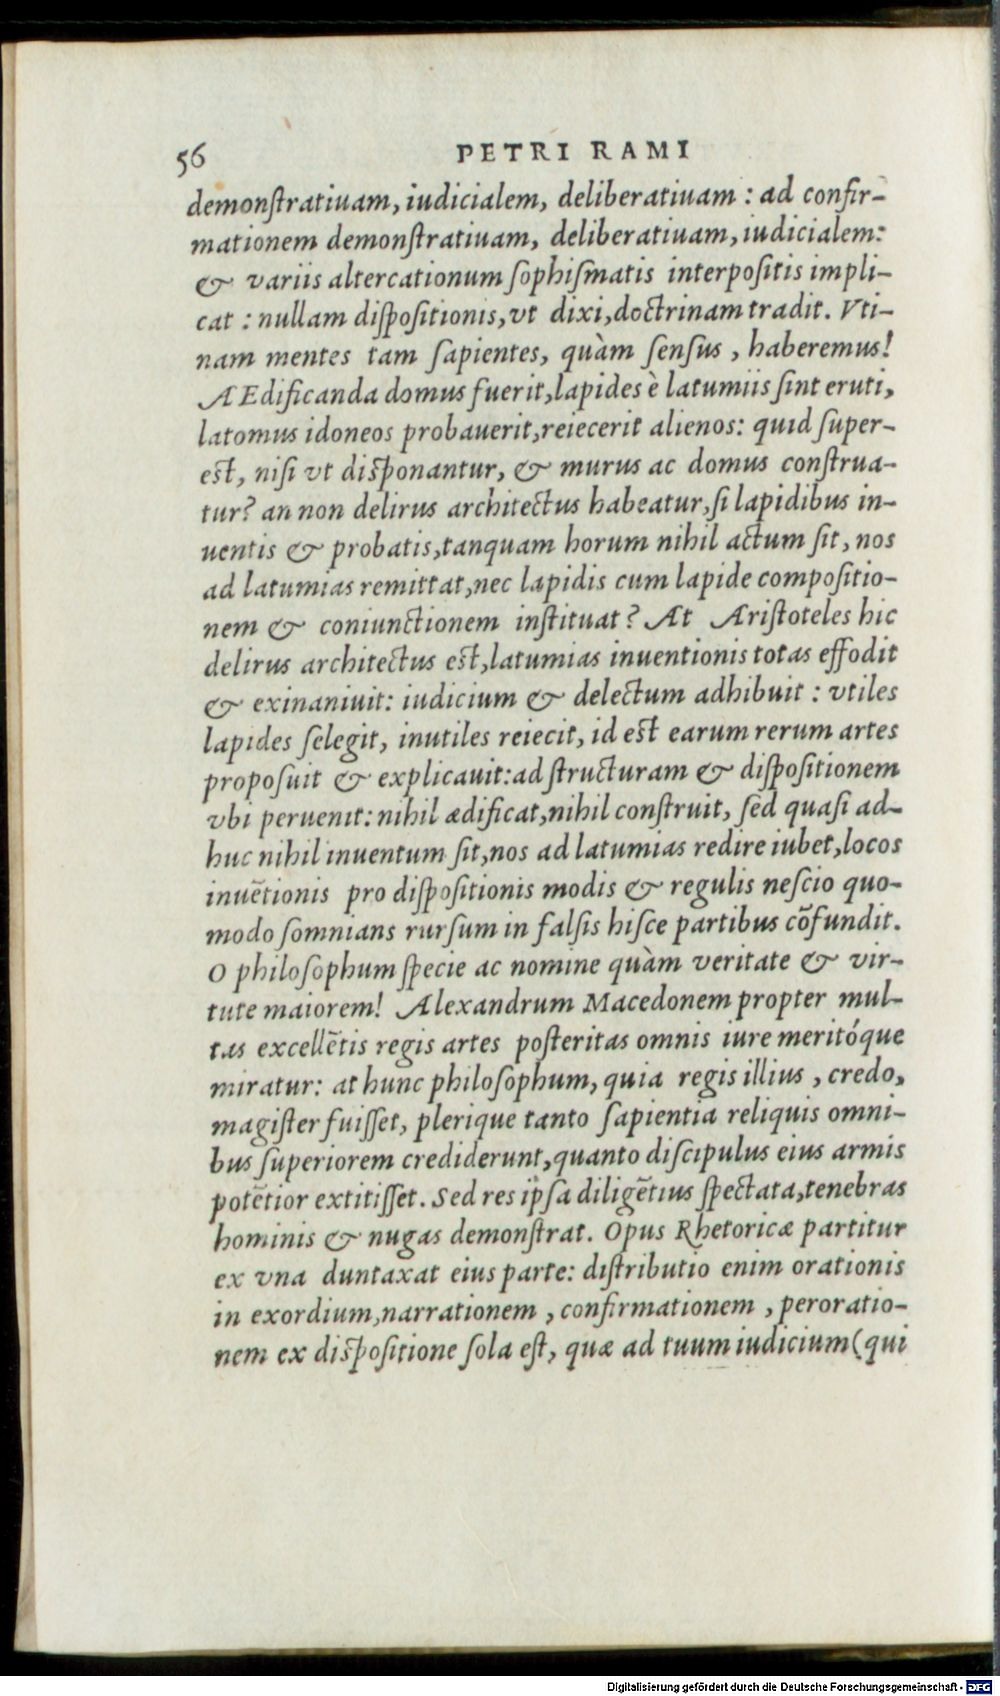 56 PETRI RAMI
demonstratiuam, iudicialem, deliberatiuam : ad confir-
mationem demonstratiuam, deliberatiuam, iudicialem:
& variis altercationum sophismatis interpositis impli-
cat : nullam dispositionis, vt dixi, doctrinam tradit. Vti-
nam mentes tam sapientes, quàm sensus , haberemus!
AEdificanda domus fuerit, lapides è latumiis sint eruti,
latomus idoneos probauerit, reiecerit alienos: quid super-
est, nisi vt disponantur, & murus ac domus construa-
tur? an non delirus architectus habeatur, si lapidibus in-
uentis & probatis, tanquam horum nihil actum sit, nos
ad latumias remittat, nec lapidis cum lapide compositio-
nem & coniunctionem instituat? At Aristoteles hic
delirus architectus est, latumias inuentionis totas effodit
& exinaniuit: iudicium & delectum adhibuit : vtiles
lapides selegit, inutiles reiecit, id est earum rerum artes
proposuit & explicauit: ad structuram & dispositionem
vbi peruenit: nihil ædificat, nihil construit, sed quasi ad-
huc nihil inuentum sit, nos ad latumias redire iubet, locos
inuẽtionis pro dispositionis modis & regulis nescio quo-
modo somnians rursum in falsis hisce partibus cõfundit.
O philosophum specie ac nomine quàm veritate & vir-
tute maiorem! Alexandrum Macedonem propter mul-
tas excellẽtis regis artes posteritas omnis iure meritóque
miratur: at hunc philosophum, quia regis illius , credo,
magister fuisset, plerique tanto sapientia reliquis omni-
bus superiorem crediderunt, quanto discipulus eius armis
potẽtior extitisset. Sed res ipsa diligẽtius spectata, tenebras
hominis & nugas demonstrat. Opus Rhetoricæ partitur
ex vna duntaxat eius parte: distributio enim orationis
in exordium, narrationem , confirmationem , peroratio-
nem ex dispositione sola est, quæ ad tuum iudicium (qui
Digitalisierung gefördert durch die Deutsche Forschungsgemeinschaft - DFG